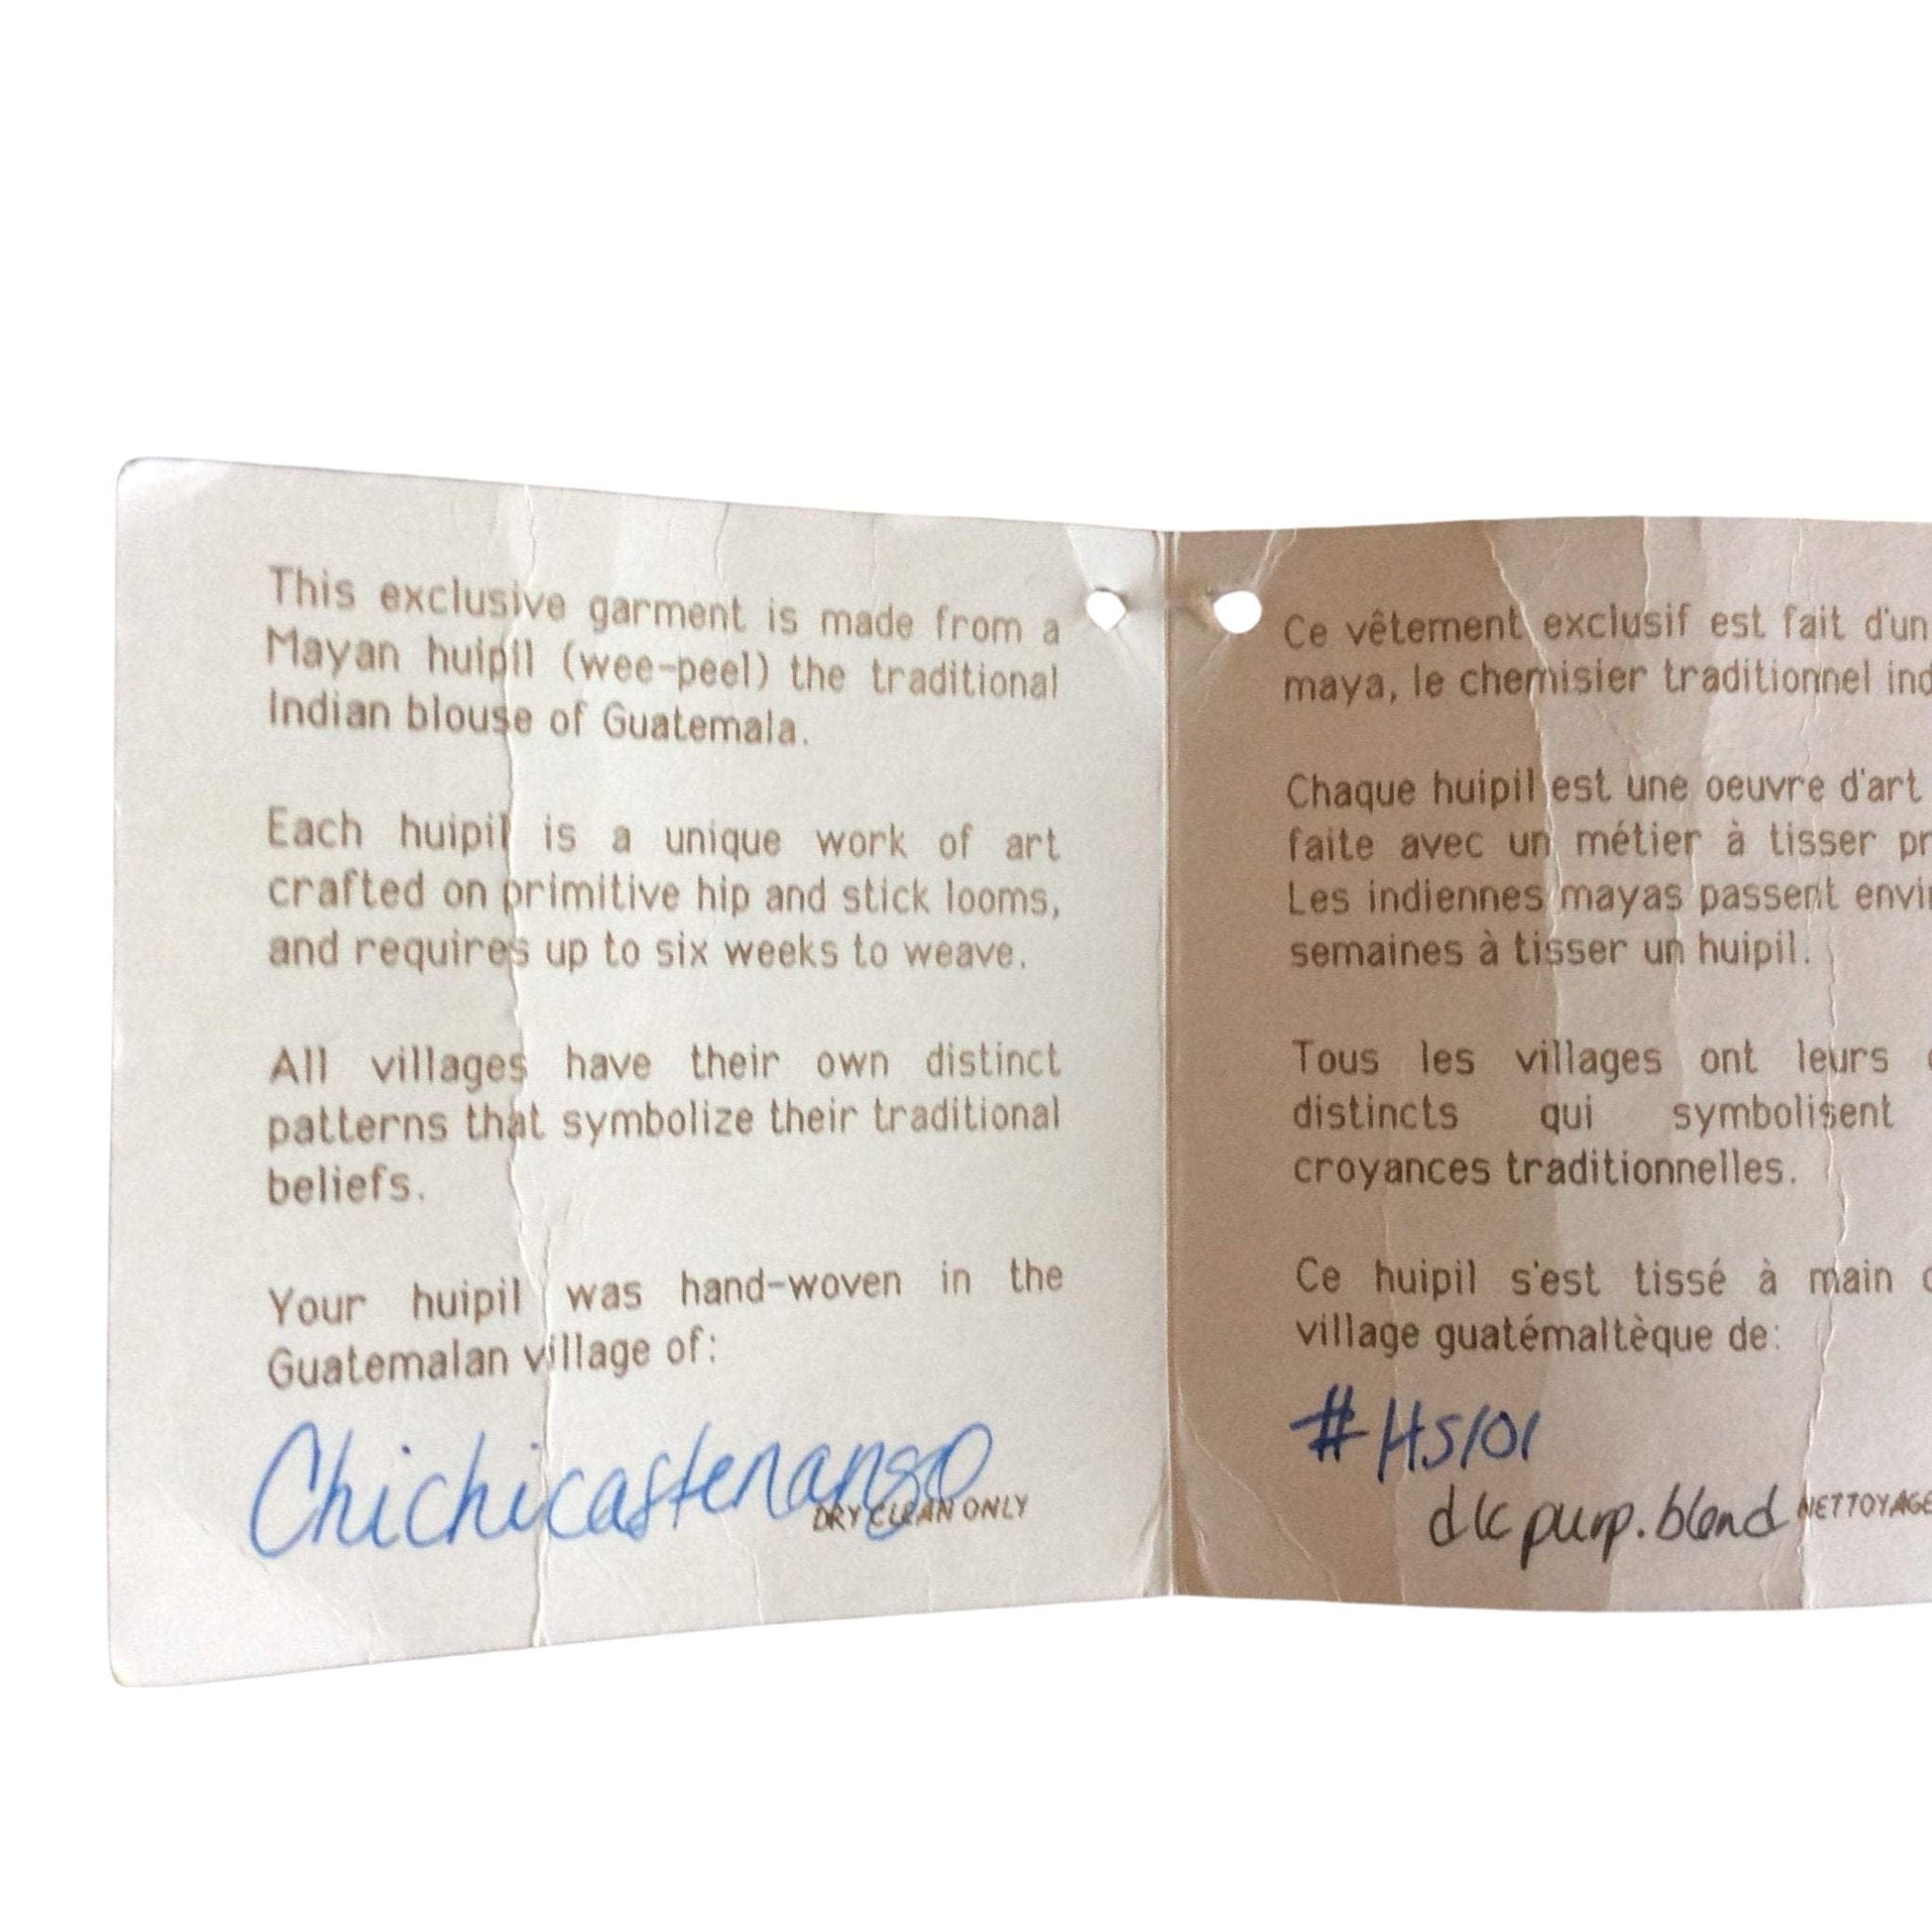 This exclusive garment is made from a
Mayan huipil (wee-peel) the traditional
Indian blouse of Guatemala.
Each huipil is a unique work of art
crafted on primitive hip and stick looms,
and requires up to six weeks to weave.
All villages have their own distinct
patterns that symbolize their traditional
beliefs.
Your huipil was hand-woven in the
Guatemalan village of:
Chichicastenango
DRY CLEAN ONLY
Ce vêtement exclusif est fait d'un
maya, le chemisier traditionnel
Chaque huipil est une oeuvre d'art
faite avec un métier à tisser
Les indiennes mayas passent
semaines à tisser un huipil.
Tous les villages ont leurs
distincts qui symbolisent
croyances traditionnelles.
Ce huipil s'est tissé à main
village guatémaltèque de:
#HS101
dk purp. blend
NETTOYAGE